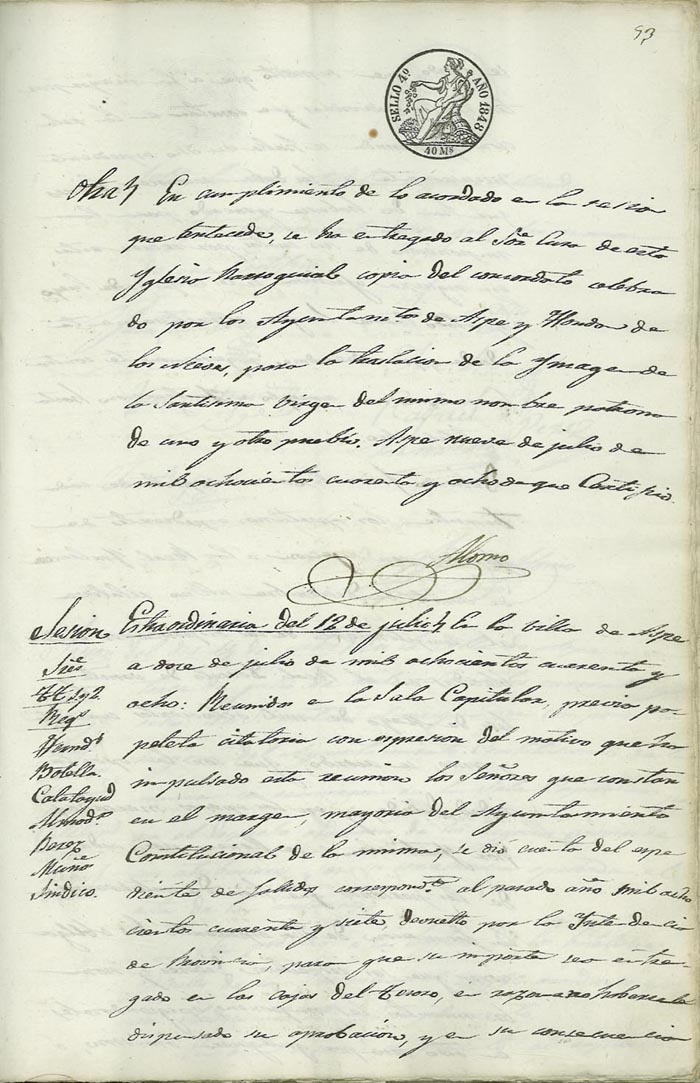 93
SELLO 4º AÑO 1848
40 Ms
Otra En cumplimiento de lo acordado en la sesion
que antecede, se ha entregado al Sor. Cura de esta
Yglesia Parroquial copia del concordato celebra
do por los Ayuntamtos. de Aspe y Hondon de
los Nieves, para la traslacion de la Ymagen de
la Santisima Virgen del mismo nombre patrona
de uno y otro pueblo. Aspe nueve de julio de
mil ochocientos cuarenta y ocho de que Certifico.
Alonso
Sesion Estraordinaria del 12 de julio En la villa de Aspe
a doce de julio de mil ochocientos cuarenta y
ocho: Reunidos en la Sala Capitular, previa pa-
peleta citatoria con espresion del motivo que ha
impulsado esta reunion los Señores que constan
en el margen, mayoria del Ayuntamiento
Constitucional de la misma, se dio cuenta del espe
diente de fallidos correspondte. al pasado año mil ocho
cientos cuarenta y siete devuelto por la Intendencia
de Provincia, para que su importe sea entre-
gado en las cajas del Tesoro, en razon a no haberse le
dispensado su aprobacion, y en su consecuencia
Sres.
TT. 1 y 2.
Regs.
Botella.
Calatayud
Almodr.
Perez
Muñoz
Sindico.